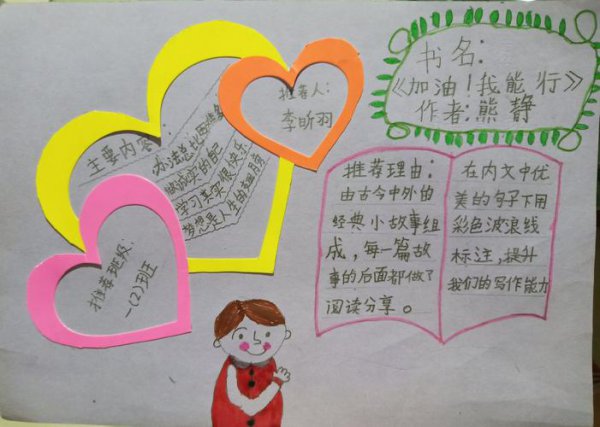 书名：
《加油！我能行》
作者：熊静
推荐人：
李昕羽
主要内容：
办法总比困难多
做诚实的自己
学习其实很快乐
梦想是人生的翅膀
推荐班级：
一(2)班
推荐理由：
由古今中外的
经典小故事组
成，每一篇故
事的后面都做了
阅读分享。
在内文中优
美的句子下用
彩色波浪线
标注，提升
我们的写作能力